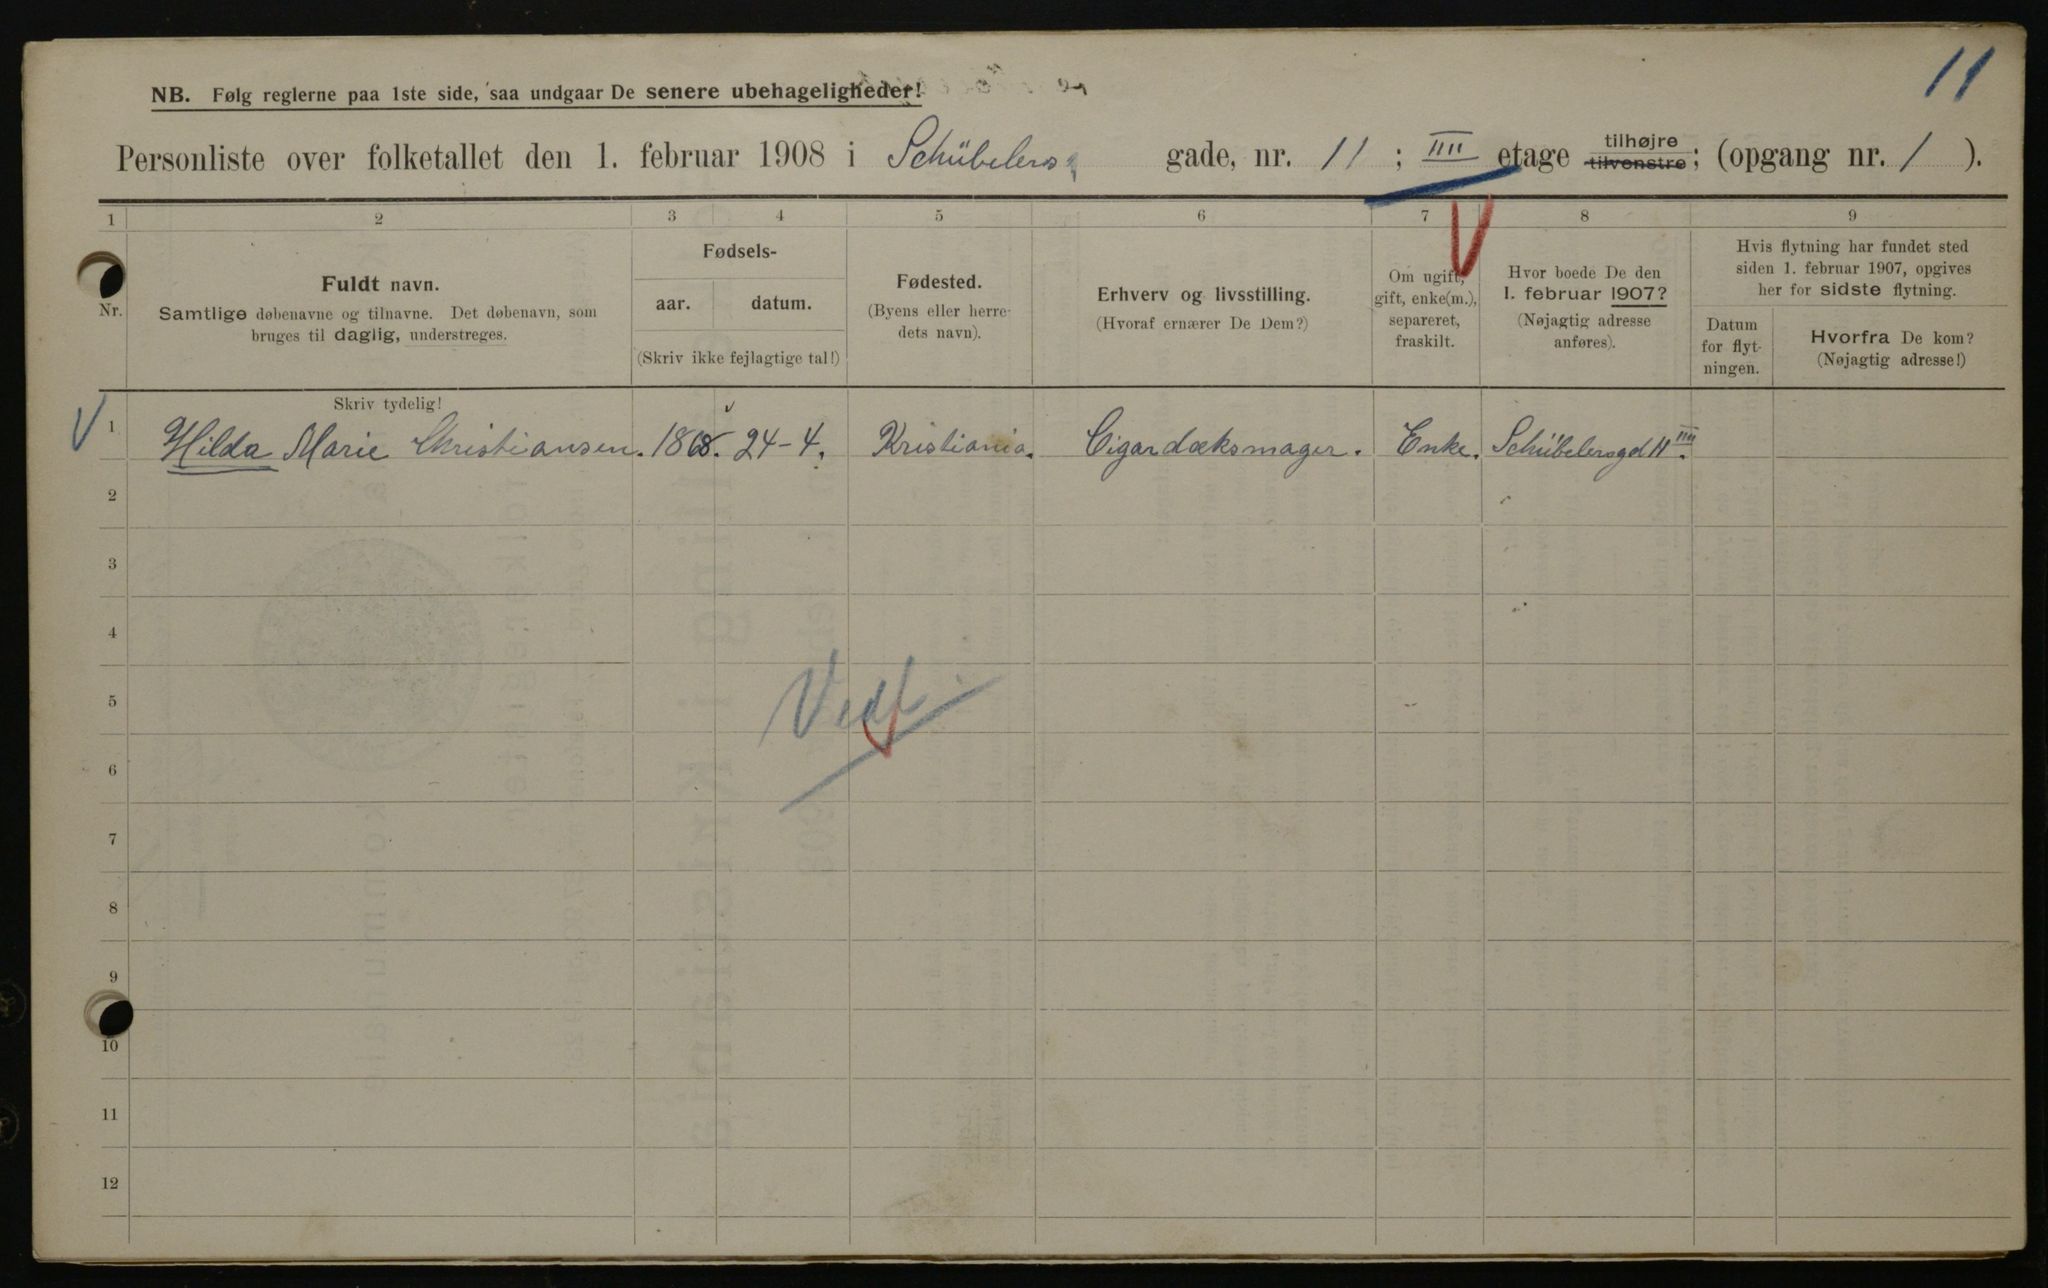 11
NB. Følg reglerne paa 1ste side, saa undgaar De senere ubehageligheder!
Personliste over folketallet den 1. februar 1908 i Schübelers gade, nr. 11 ; IIII etage tilhøjre tilvenstre ; (opgang nr. 1 ).
1 2 3 4 5 6 7 8 9
Nr.
Fuldt navn.
Samtlige døbenavne og tilnavne. Det døbenavn, som
bruges til daglig, understreges.
Fødsels-
aar. datum.
(Skriv ikke fejlagtige tal!)
Fødested.
(Byens eller herre-
dets navn).
Erhverv og livsstilling.
(Hvoraf ernærer De Dem?)
Om ugift,
gift, enke(m.),
separeret,
fraskilt.
Hvor boede De den
1. februar 1907?
(Nøjagtig adresse
anføres).
Hvis flytning har fundet sted
siden 1. februar 1907, opgives
her for sidste flytning.
Datum
for flyt-
ningen.
Hvorfra De kom?
(Nøjagtig adresse!)
Skriv tydelig!
1 Hilda Marie Christiansen. 1868. 24-4. Kristiania. Cigardæksmager. Enke. Schübelersgd 11 IIII.
2
3
4
5
6
7
8
9
10
11
12